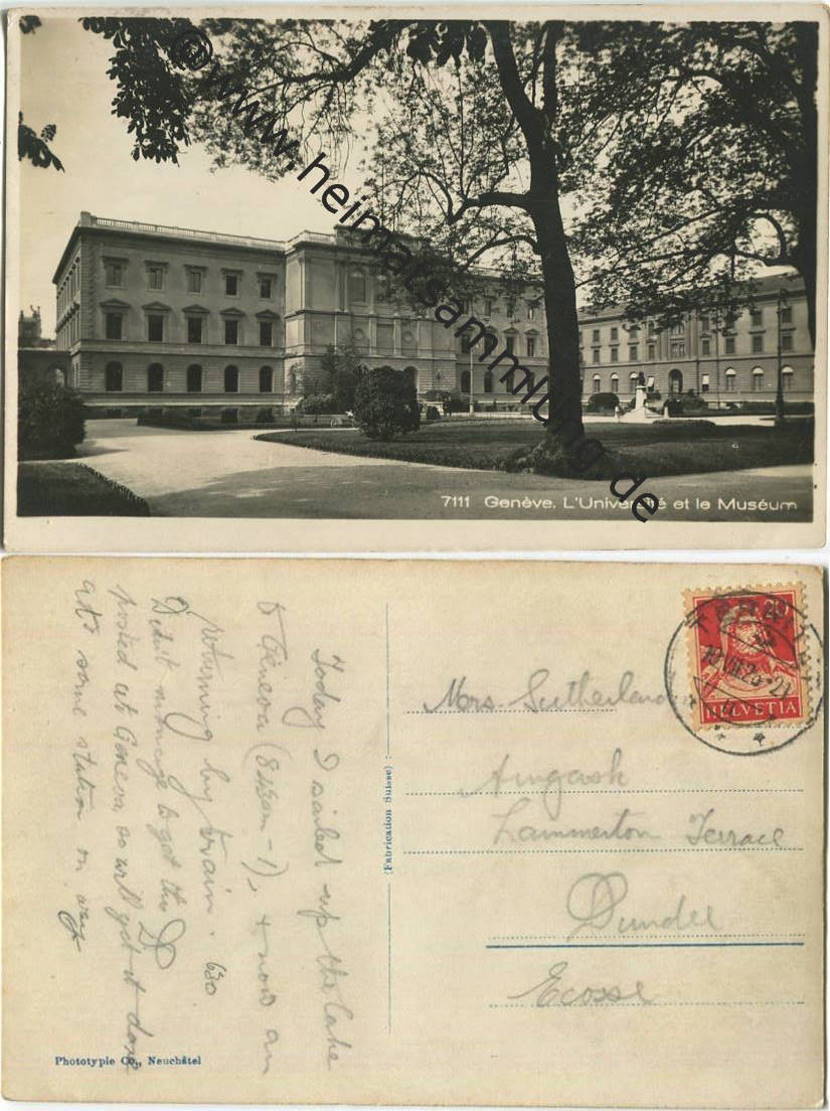 © www.heimatsammlung.de
7111 Genève. L'Université et le Muséum
Today I sailed up the lake
to Geneva (8.15am - 1), & now am
returning by train. 630
Didn't manage to get this
posted at Geneva, so will get it done
at some station on way
D
(Fabrication Suisse)
Phototypie Co., Neuchâtel
20
HELVETIA
Mrs. Sutherland
Lammerton Terrace
Dundee
Ecosse